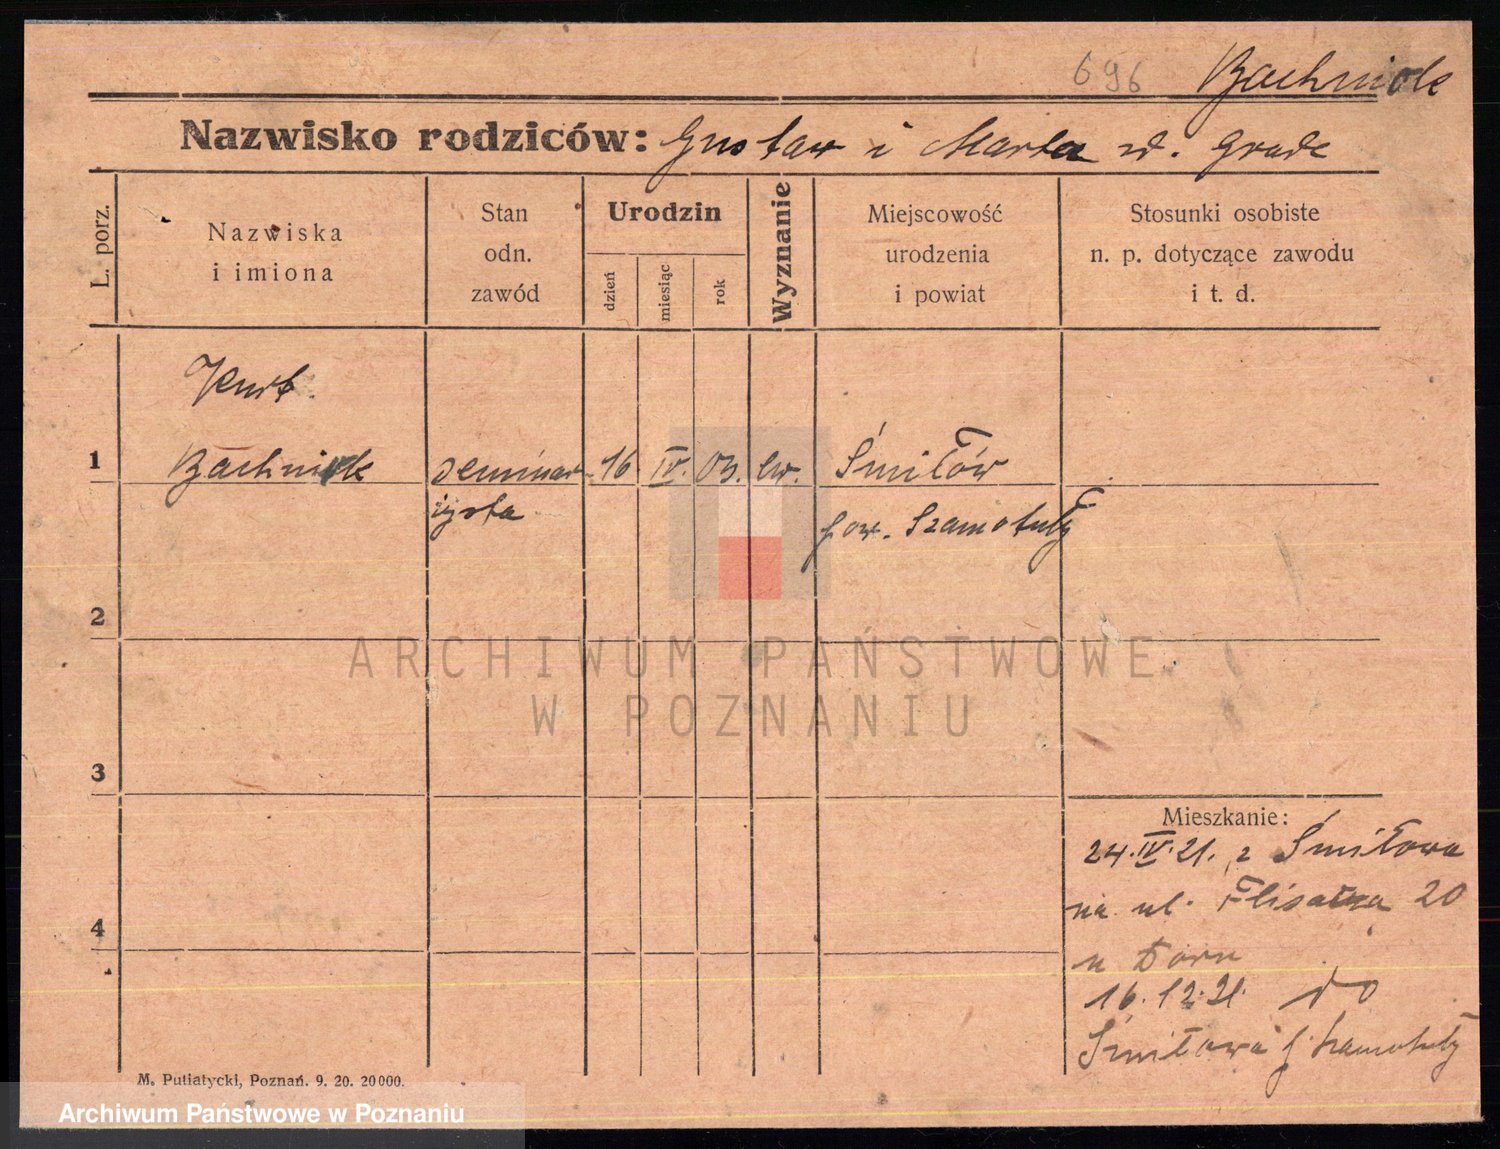 696 Bachniok
Nazwisko rodziców: Gustaw i Marta z d. Grade
L. porz.
Nazwiska
i imiona
Stan
odn.
zawód
Urodzin
dzień
miesiąc
rok
Wyznanie
Miejscowość
urodzenia
i powiat
Stosunki osobiste
n. p. dotyczące zawodu
i t. d.
Kurt
1 Bachniok seminar- 16 IV. 03. ew. Śmiłów
zysta pow. Szamotuły
2
3
4
Mieszkanie:
24.IV.21. z Śmiłowa
na ul. Flisacka 20
u Dorn
16.12.21. do
Śmiłowa p. Szamotuły
M. Putiatycki, Poznań. 9. 20. 20000.
ARCHIWUM PAŃSTWOWE
W POZNANIU
Archiwum Państwowe w Poznaniu